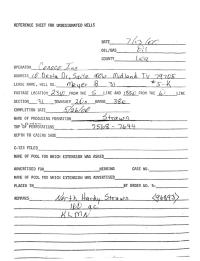 REFERENCE SHEET FOR UNDESIGNATED WELLS
DATE 7/13/
OIL/GAS Oil
COUNTY Lea
OPERATOR Conoco Inc
ADDRESS 10 Desta Dr, Suite Midland TX 79705
LEASE NAME, WELL NO. Meyer B 31 #5-K
FOOTAGE LOCATION FROM THE S LINE AND FROM THE LINE
SECTION 31 TOWNSHIP RANGE 38e
COMPLETION DATE
NAME OF PRODUCING FORMATION Strawn
TOP OF PERFORATIONS 7568 - 7694
DEPTH TO CASING SHOE
C-123 FILED
NAME OF POOL FOR WHICH EXTENSION WAS ASKED
ADVERTISED FOR HEARING CASE NO.
NAME OF POOL FOR WHICH EXTENSION WAS ADVERTISED
PLACED IN BY ORDER NO. R-
REMARKS North Hardy Strawn (96893)
160 ac
KLMN